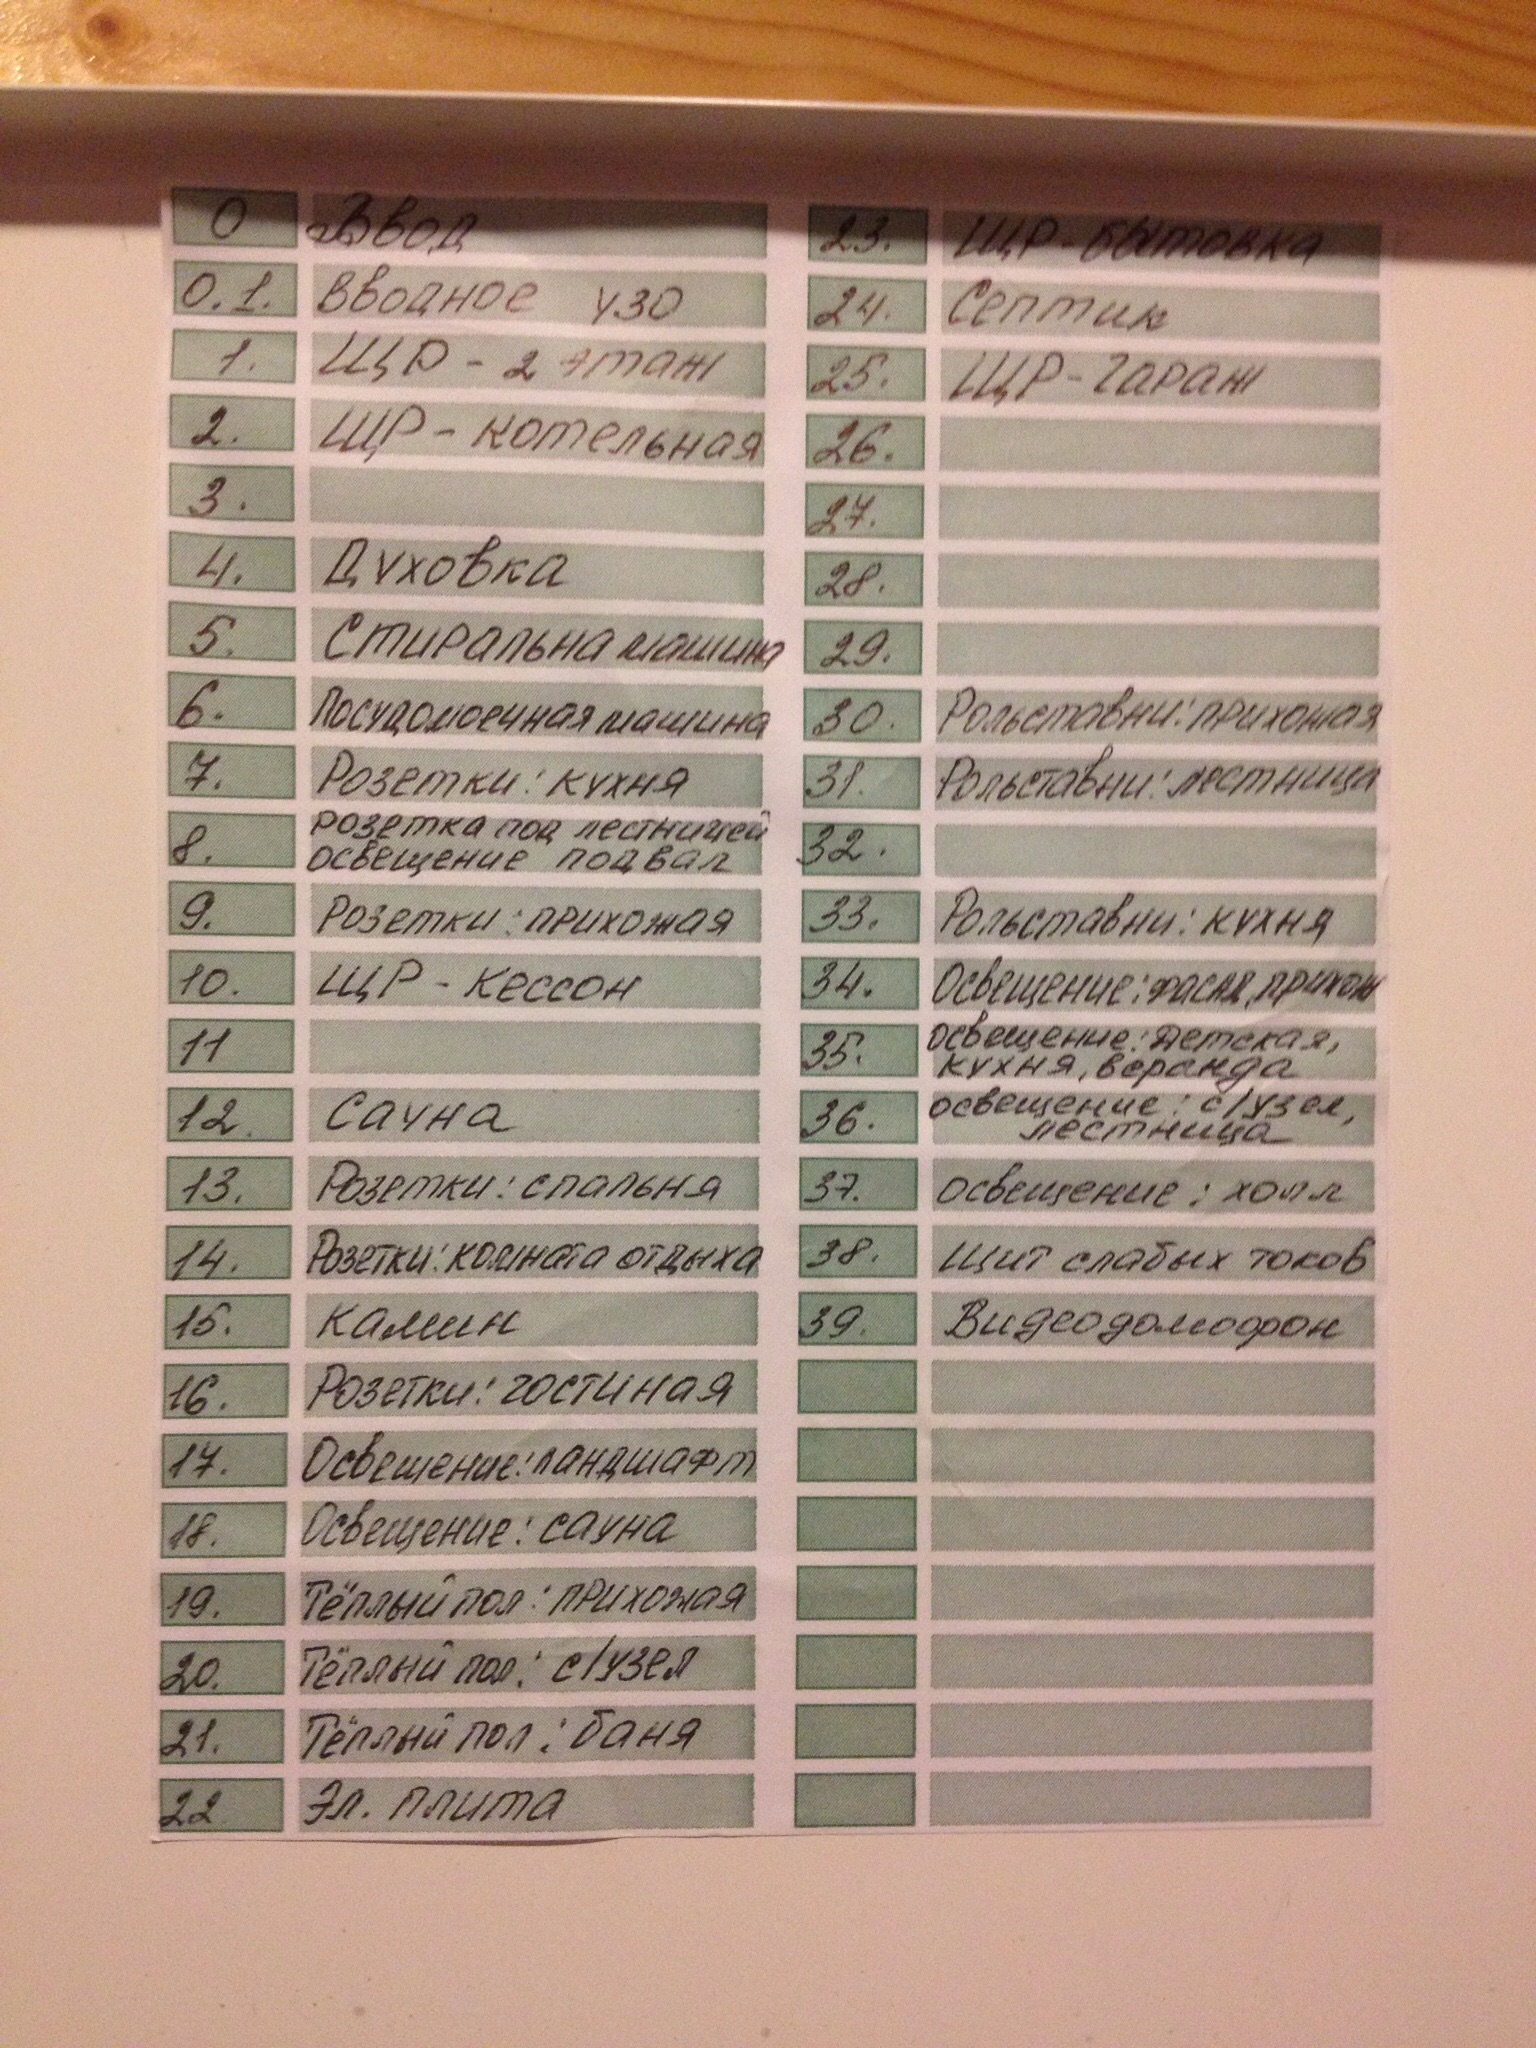 0 Ввод
0.1. Вводное УЗО
1. ЩР - 2 этаж
2. ЩР - котельная
3.
4. Духовка
5. Стиральна машина
6. Посудомоечная машина
7. Розетки: кухня
8. розетка под лестницей
освещение подвал
9. Розетки: прихожая
10. ЩР - Кессон
11
12. Сауна
13. Розетки: спальня
14. Розетки: комната отдыха
15. Камин
16. Розетки: гостиная
17. Освещение: ландшафт
18. Освещение: сауна
19. Тёплый пол: прихожая
20. Тёплый пол: с/узел
21. Тёплый пол: баня
22 Эл. плита
23. ЩР - бытовка
24. Септик
25. ЩР - гараж
26.
27.
28.
29.
30. Рольставни: прихожая
31. Рольставни: лестница
32.
33. Рольставни: кухня
34. Освещение: фасад, прихож
35. освещение: детская,
кухня, веранда
36. освещение: с/узел,
лестница
37. освещение: холл
38. Щит слабых токов
39. Видеодомофон